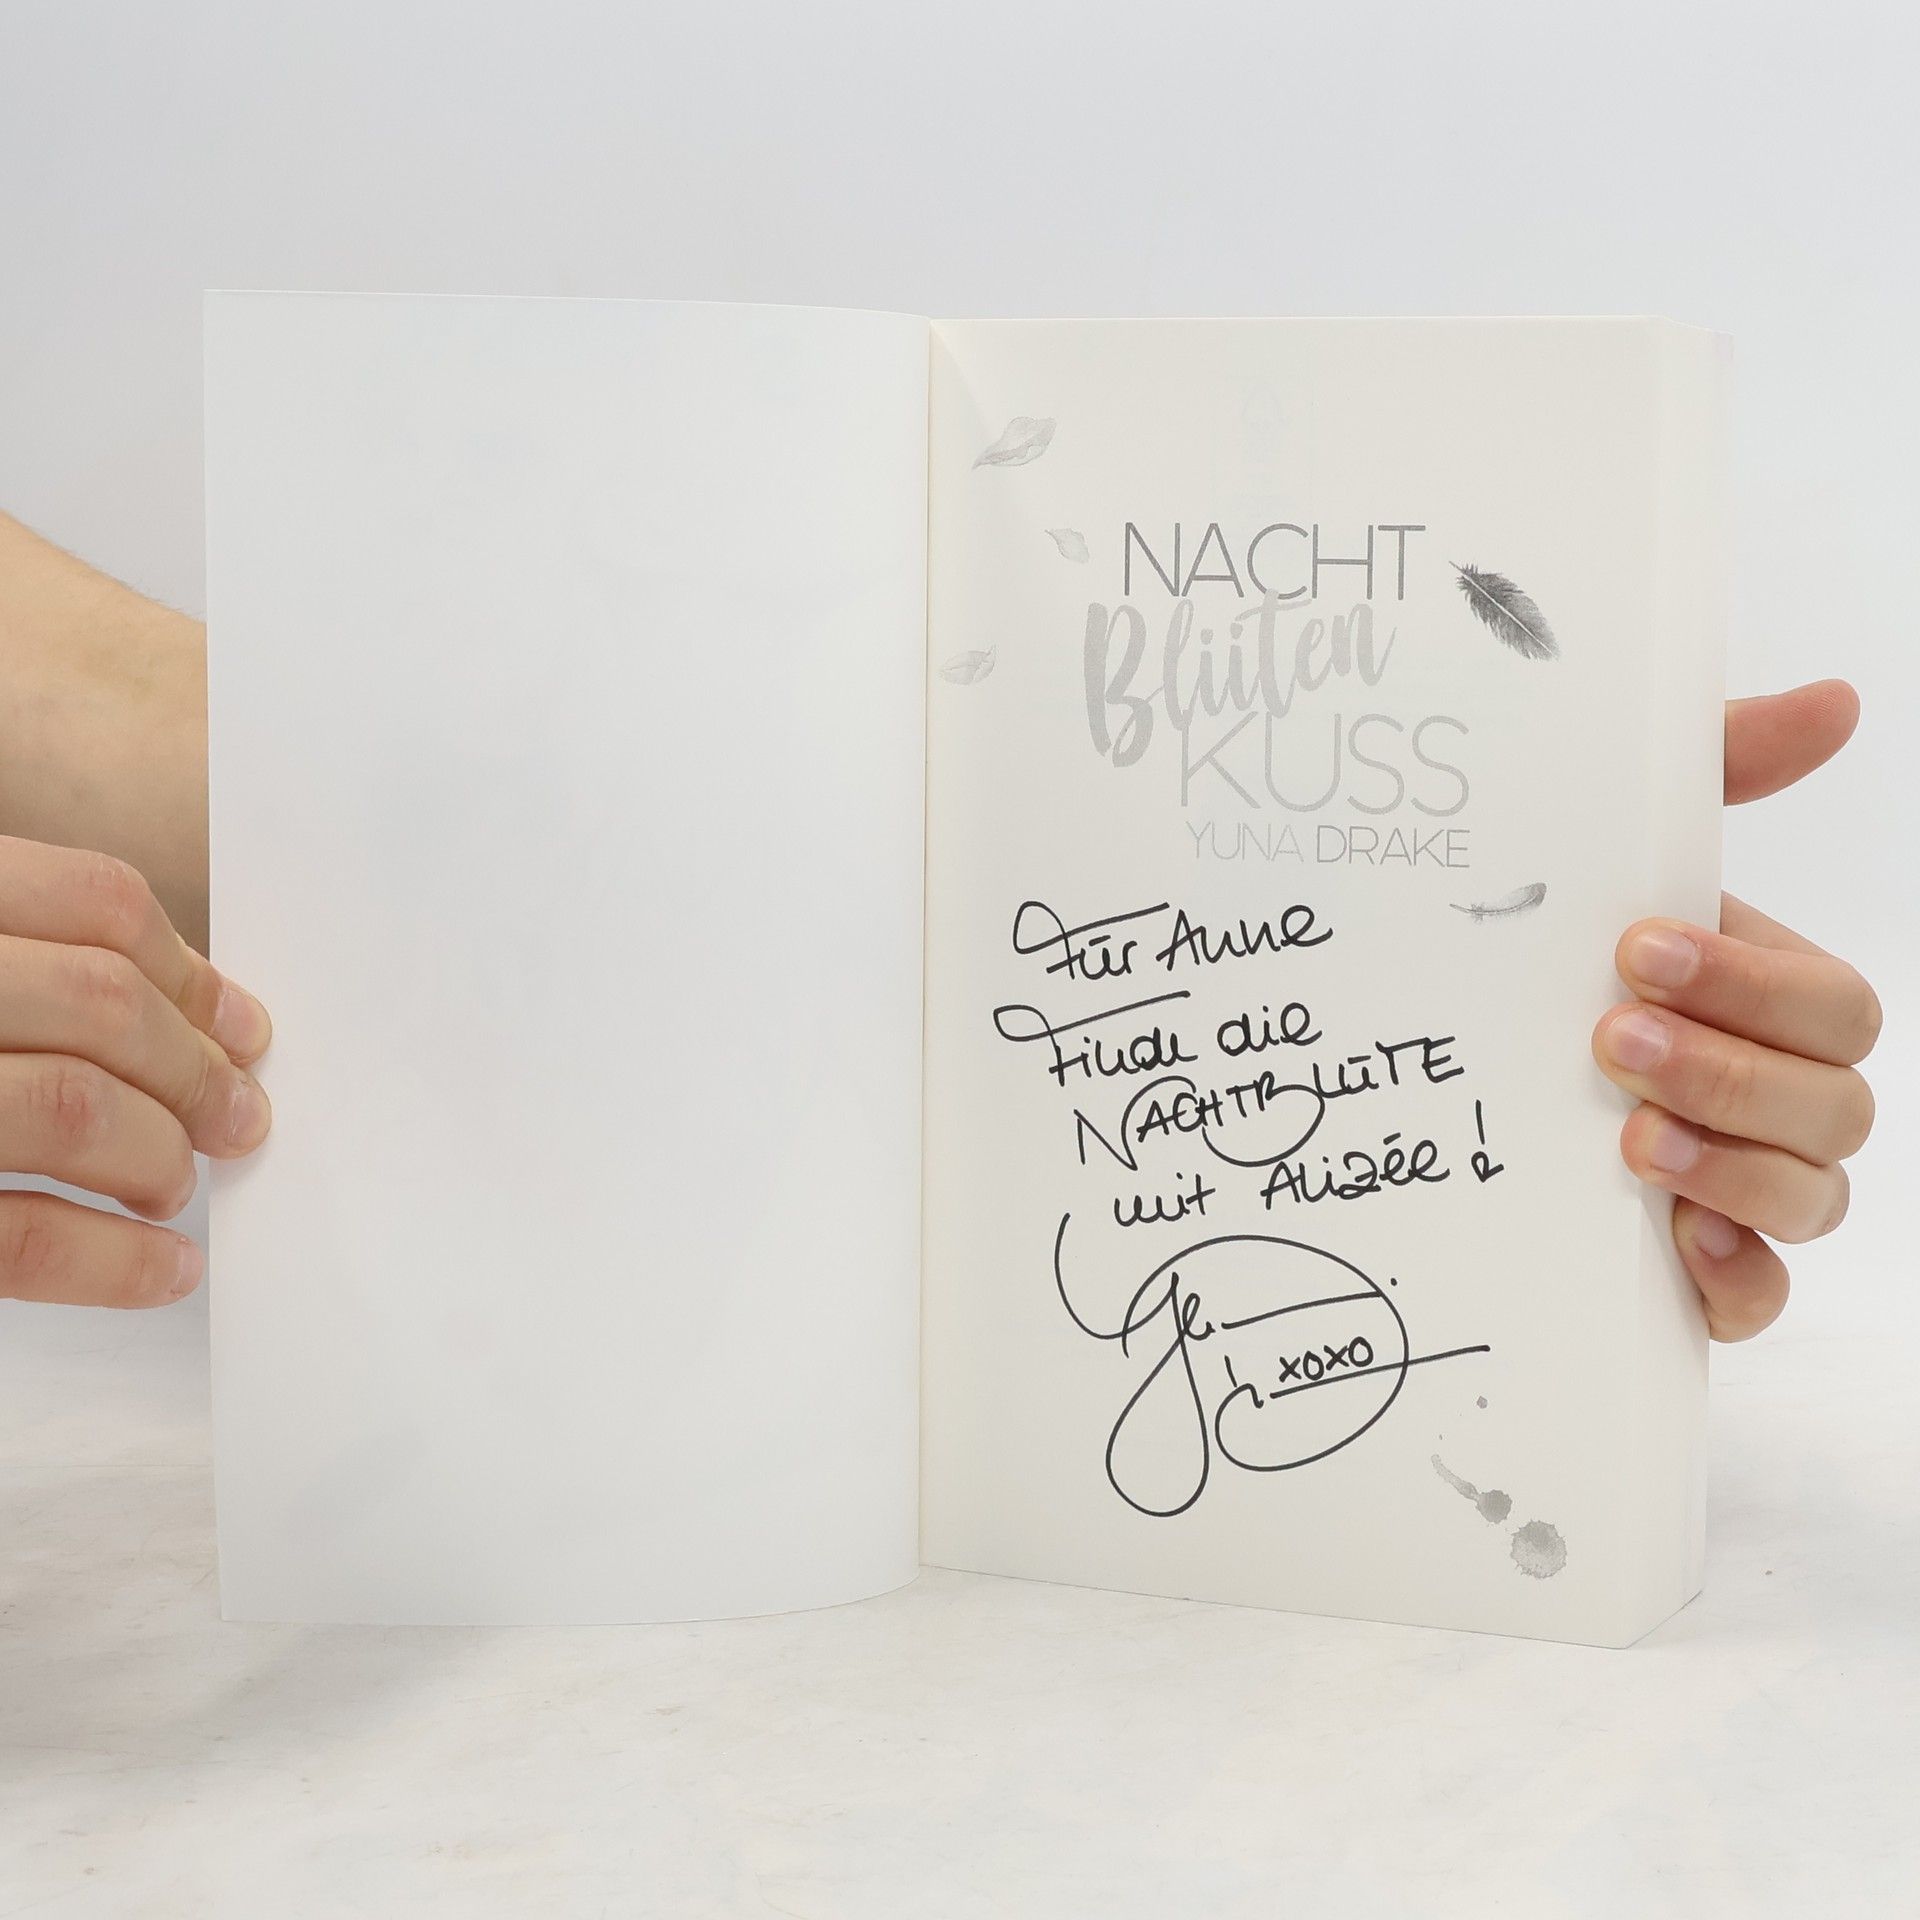 NACHT
Blüten
KUSS
YUNA DRAKE
Für Anne
Finde die
NACHTBLÜTE
mit Alizée!
xoxo